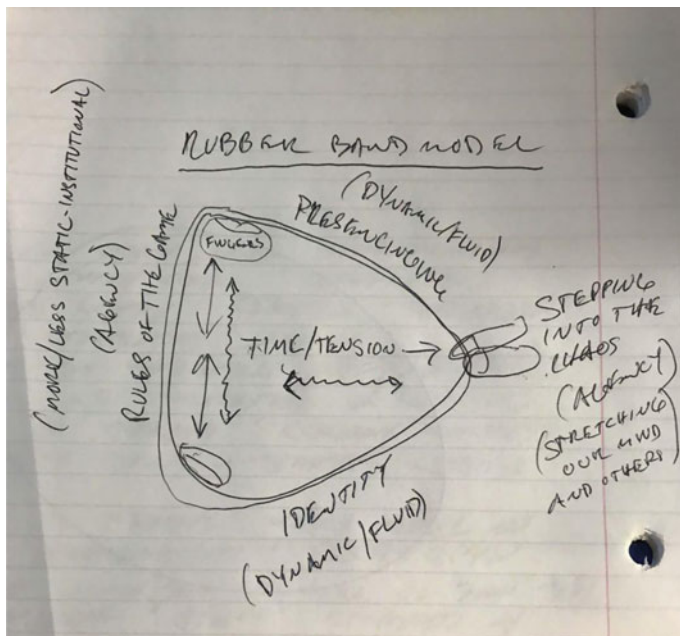 RUBBER BAND MODEL
(MORE/LESS STATIC-INSTITUTIONAL)
(AGENCY)
RULES OF THE GAME
(DYNAMIC/FLUID)
PRESENCING
FINGERS
TIME/TENSION
STEPPING
INTO THE
CHAOS
(AGENCY)
(STRETCHING
OUR MIND
AND OTHERS)
IDENTITY
(DYNAMIC/FLUID)